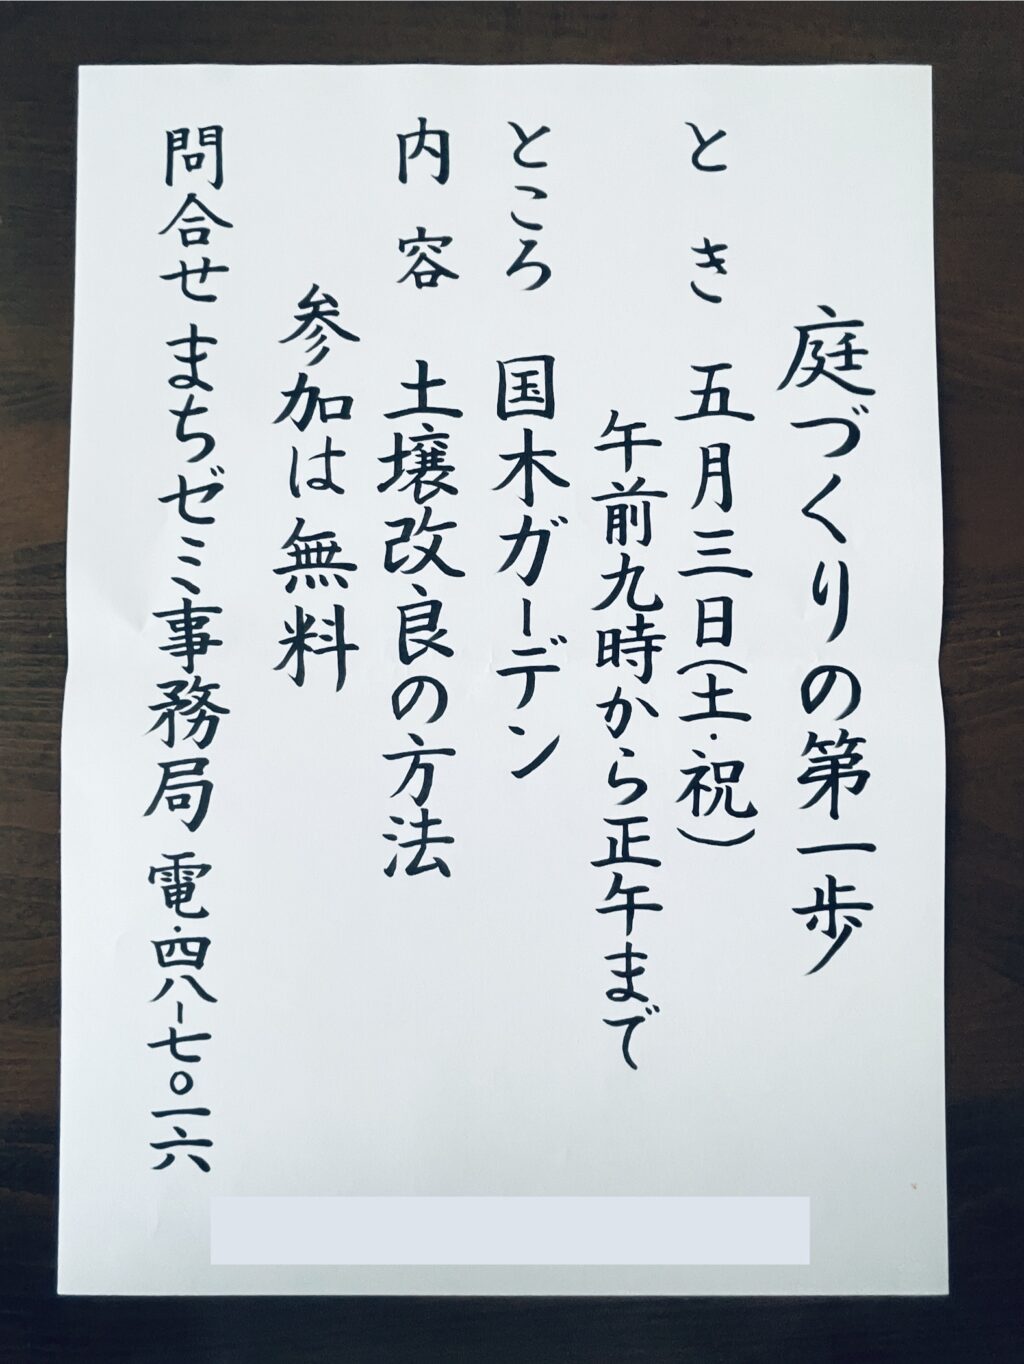 庭づくりの第一歩
とき 五月三日(土・祝)
午前九時から正午まで
ところ 国木ガーデン
内容 土壌改良の方法
参加は無料
問合せ まちゼミ事務局 電・四八-七〇一六